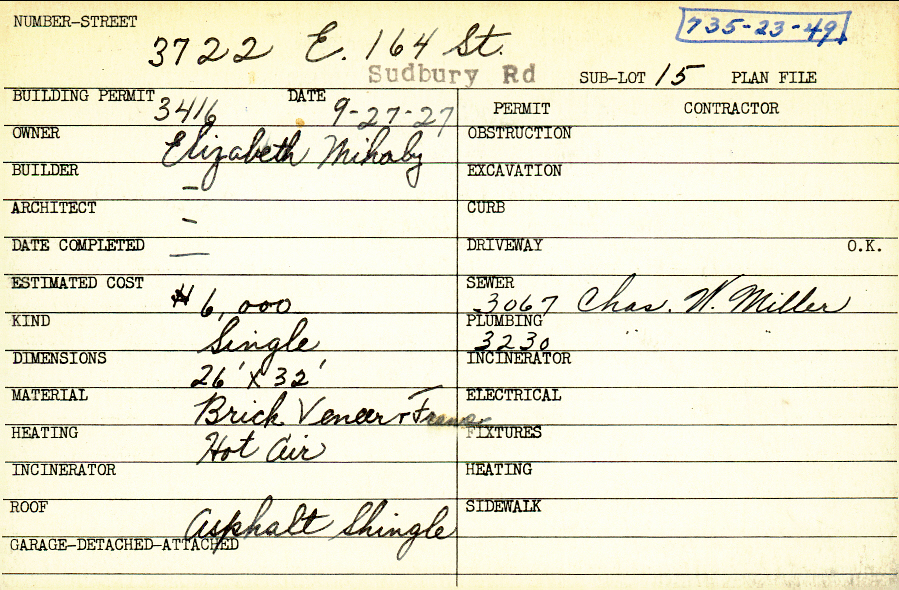 NUMBER-STREET
735-23-49
3722 E. 164 St.
Sudbury Rd
SUB-LOT 15 PLAN FILE
BUILDING PERMIT 3416 DATE 9-27-27
PERMIT CONTRACTOR
OWNER Elizabeth Mihaly
OBSTRUCTION
BUILDER —
EXCAVATION
ARCHITECT -
CURB
DATE COMPLETED —
DRIVEWAY O.K.
ESTIMATED COST $6,000
SEWER 3067 Chas. W. Miller
KIND Single
PLUMBING 3230 " "
DIMENSIONS 26' x 32'
INCINERATOR
MATERIAL Brick Veneer + Frame
ELECTRICAL
HEATING Hot Air
FIXTURES
INCINERATOR
HEATING
ROOF Asphalt Shingle
SIDEWALK
GARAGE-DETACHED-ATTACHED